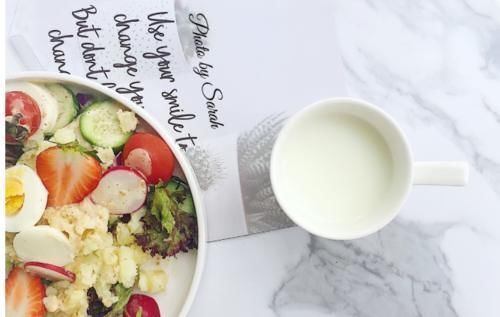 Photo by Sarah
Use your smile to
change yo
But dont
chan